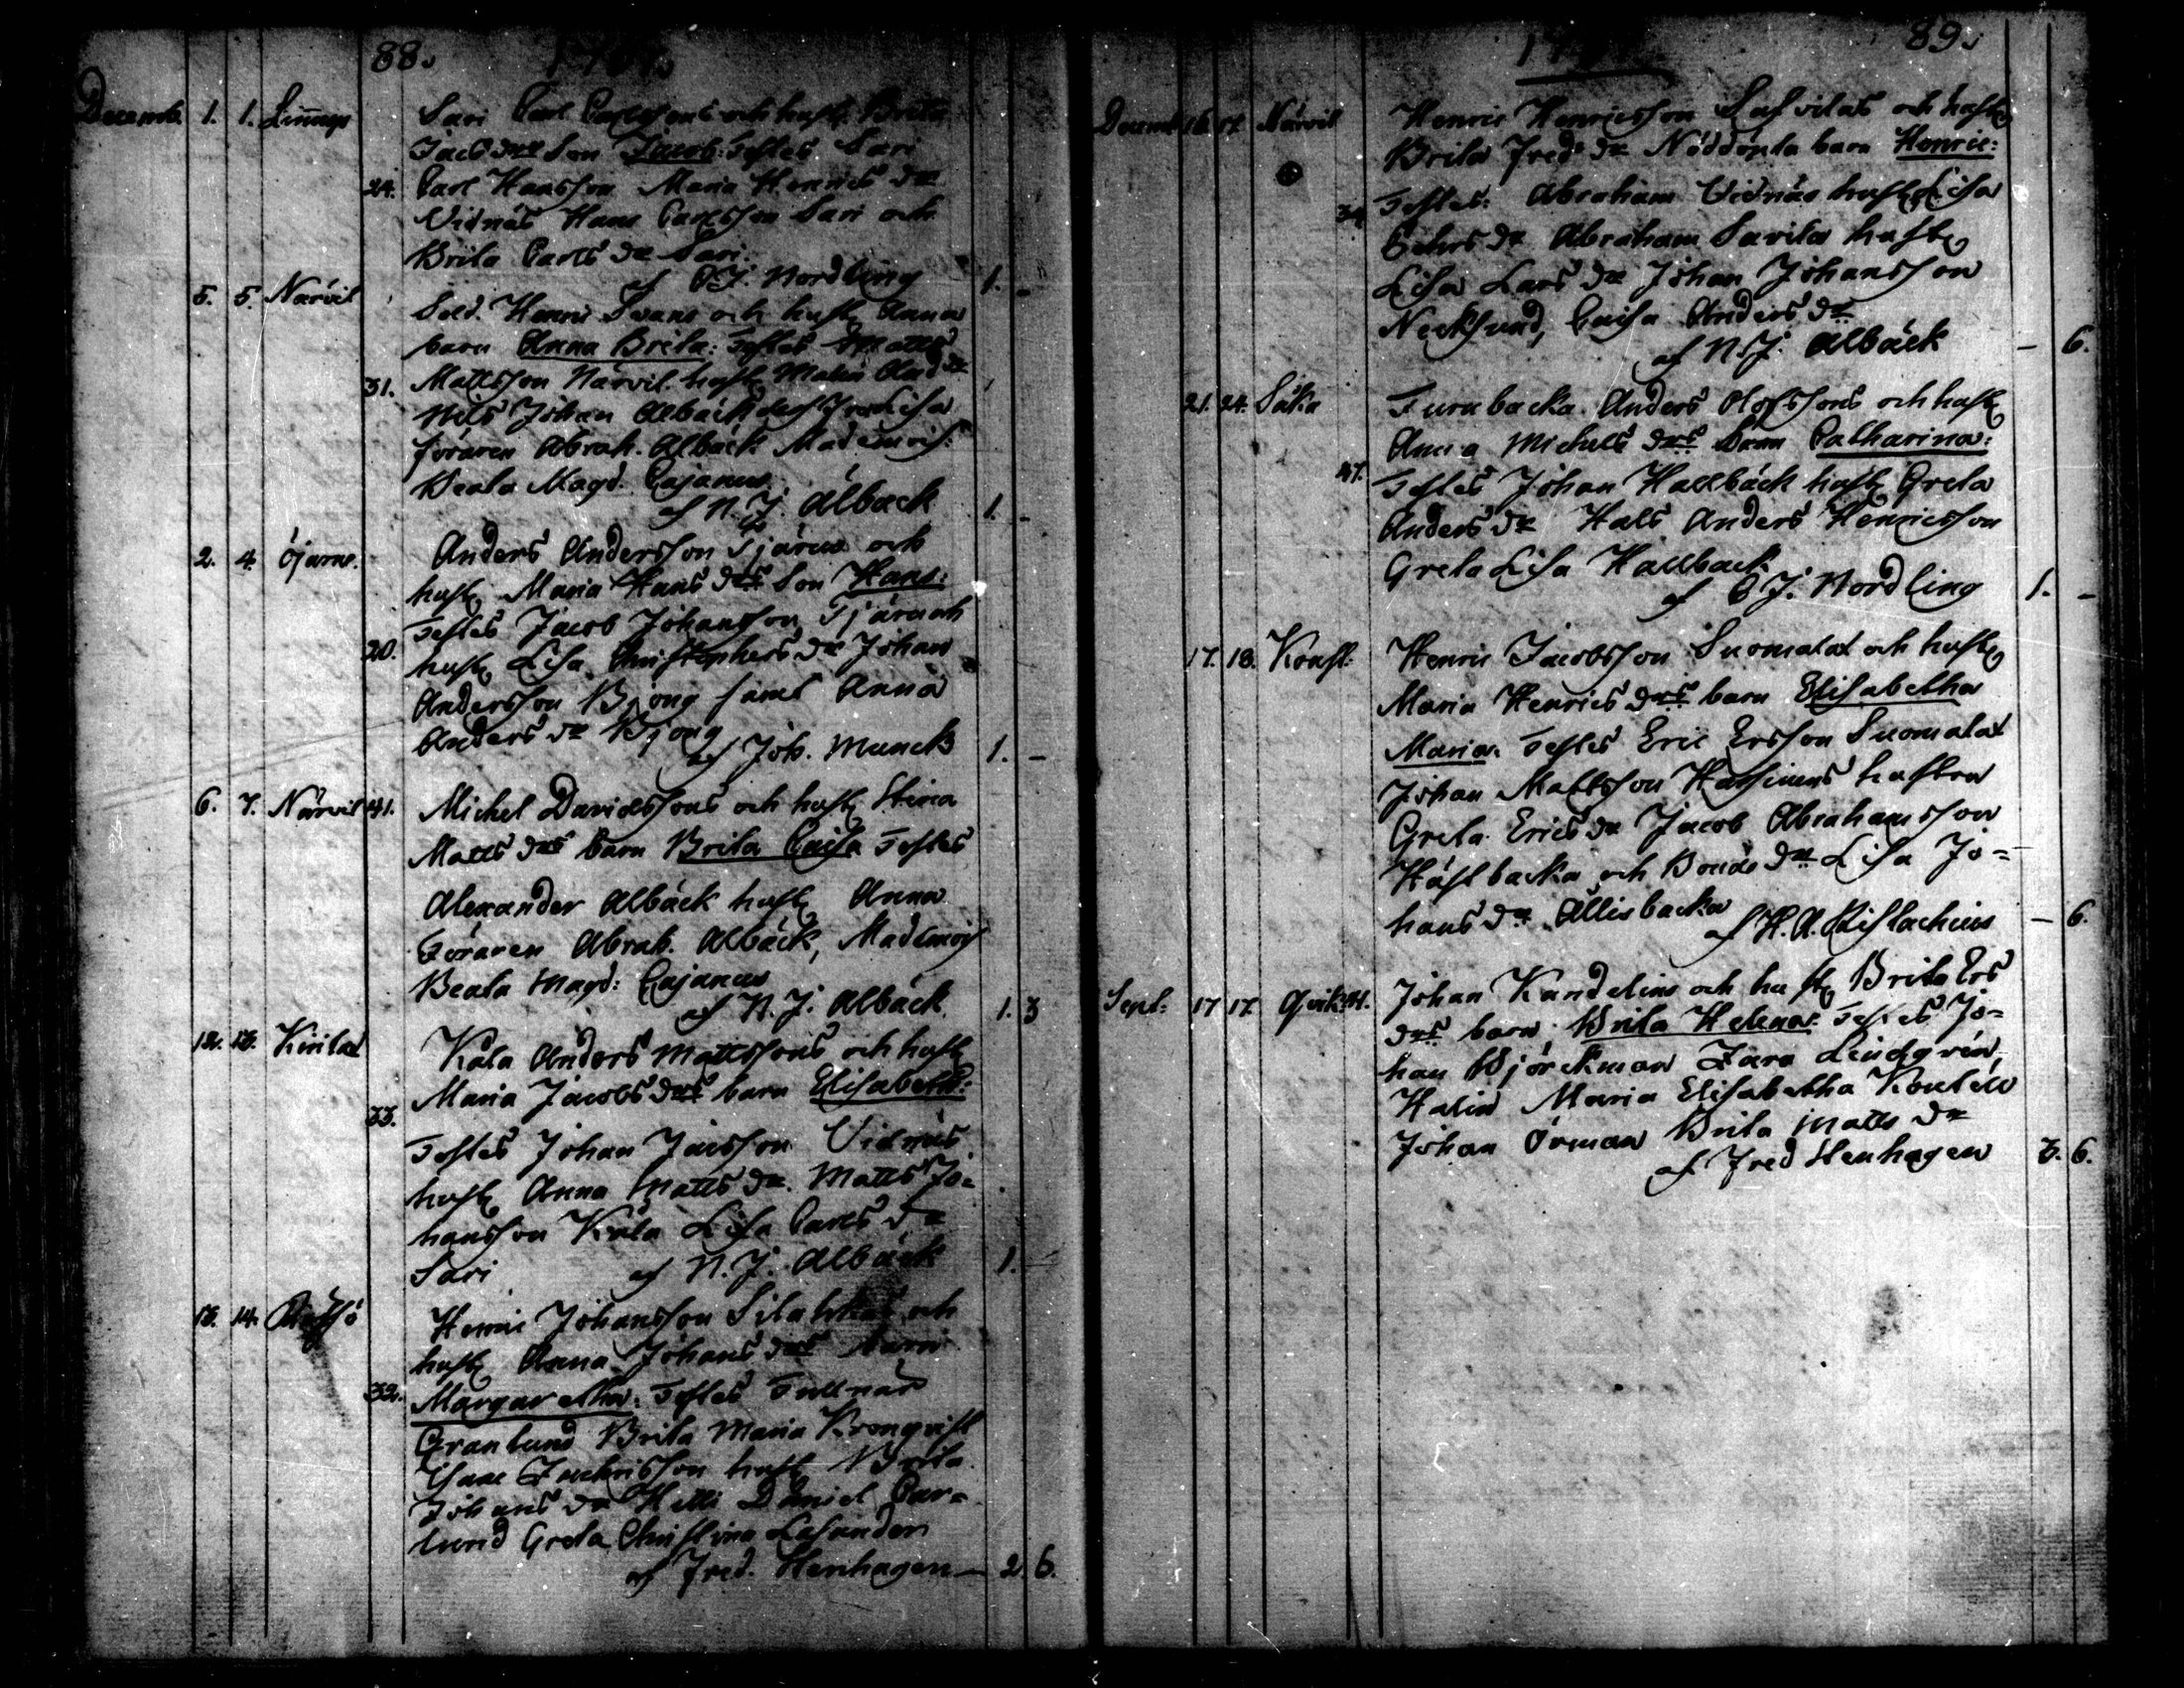 88.
Decemb. 1. 1. Liñnge Sari Carl Carlssons och hust. Brita
Jacs drs Son Jacob: Testes Sari
24. Carl Hansson Maria Henrics dr
Vidnäs Hans Carlsson Sari och
Brita Carls dr Sari.
af C J. Nordling 1. -
5. 5. Närvil Sold. Henric Svans och hust. Anna
barn Anna Brita: Testes Matts
31. Mattsson Närvil. hust. Malin And dr
Nils Johan Albäck dess fru Lisa
föraren Abrah. Albäck Mademois:
Beata Magd. Cajanus
af N. J. Albäck 1. -
2. 4. Öjarne. Anders Andersson Tjäru och
hust. Maria Hans drs Son Hans:
Testes Jacob Johansson Tjäru och
20. hust. Lisa Christophers dr Johan
Andersson Bjong samt Anna
Anders dr Bjong
af Joh. Munck 1. -
6. 7. Närvil 41. Michel Davidssons och hust. Stina
Matts drs barn Brita Caisa Testes
Alexander Albäck hust. Anna
Föraren Abrah. Albäck, Mademois
Beata Magd: Cajanus
af N. J. Albäck 1. 3
12. 13. Kirilax Kåla Anders Mattssons och hust.
Maria Jacobs drs barn Elisabeth:
33.
Testes Johan Jacsson Vidnäs
hust. Anna Matts dr. Matts Jo=
hansson Kåla Lisa Carls dr
Sari af N. J. Albäck 1. -
13. 14. Henric Johansson och
hust. Anna Johans drs barn
32. Margaretha: Testes Tullnär
Granlund Brita Maria Kronqvist
Isaac hust. Brita
Johans dr Daniel Car=
lund Greta Christina
af Fred. Stenhagen - 2. 6.
89.
Decemb. 16. 17. Närvil Henric Henricsson och hust.
Brita Freds dr Nöddönta barn Henric:
Testes: Abraham Vidnäs hust. Lisa
34 dr Abraham Savila hust.
Lisa Lars dr Johan Johansson
Necksund, Caisa Anders dr
af N J. Albäck - 6.
21. 24. Såka Furubacka Anders Olofssons och hust.
Anna Michels drs barn Catharina:
47. Testes Johan Hallbäck hust. Greta
Anders dr Hals Anders Henricsson
Greta Lisa Hallback
af C J. Nordling 1. -
17. 18. Henric Jacobsson Suomalax och hust.
Maria Henrics drs barn Elisabetha
Maria: Testes Eric Ersson Suomalax
Johan Mattsson hustru
Greta Erics dr Jacob Abrahamsson
Hästbacka och Bonde dr Lisa Jo=
hans dr Ällisbacka
af H. A. - 6.
Sept. 17 17. Johan Kandelins och hust. Brita Ers
drs barn: Brita Helena: Testes Jo=
han Björckman Zara Lindqvin,
Maria Elisabetha
Johan Örman Brita Matts dr
af Fred Stenhagen 3. 6.